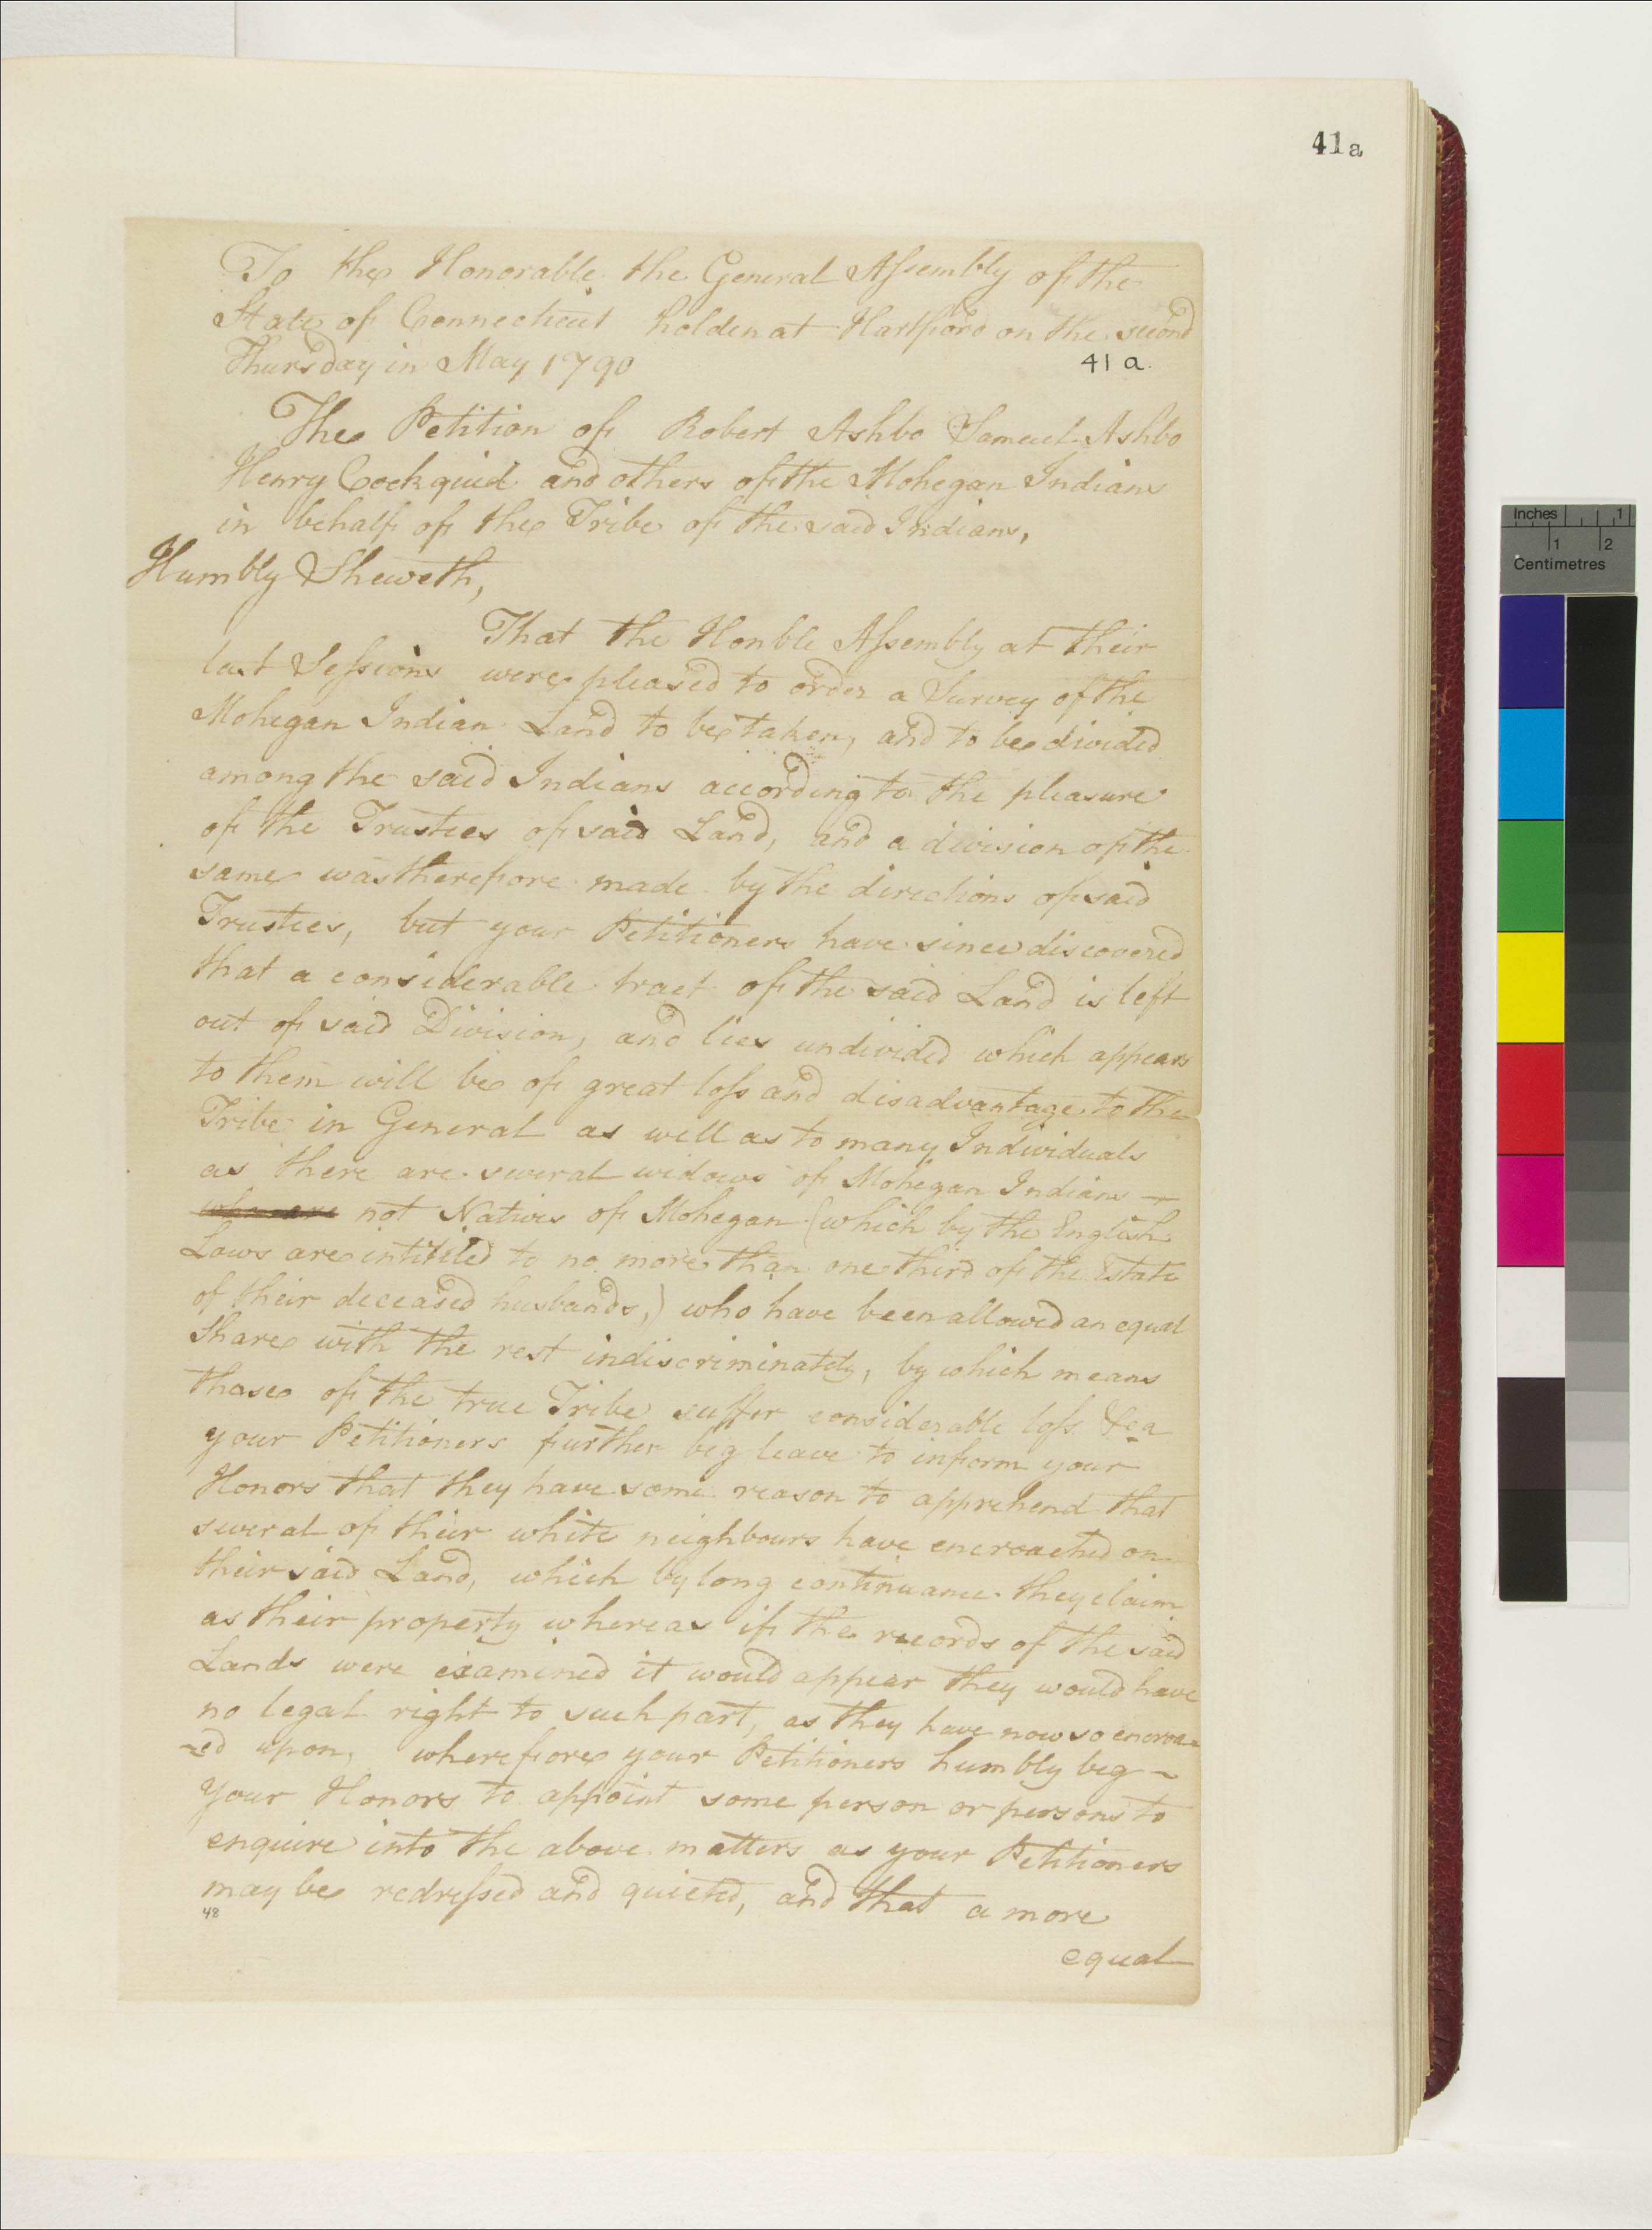 41a
To the Honorable the General Assembly of the
State of Connecticut holden at Hartford on the second
Thursday in May 1790
41 a.
The Petition of Robert Ashbo Samuel Ashbo
Henry Cockquid and others of the Mohegan Indians
in behalf of the Tribe of the said Indians,
Humbly Sheweth,
That the Honble Assembly at their
last Sessions were pleased to order a Survey of the
Mohegan Indian Land to be taken, and to be divided
among the said Indians according to the pleasure
of the Trustees of said Land, and a division of the
same was therefore made by the directions of said
Trustees, but your Petitioners have since discovered
that a considerable tract of the said Land is left
out of said Division, and lies undivided which appears
to them will be of great loss and disadvantage to the
Tribe in General as well as to many Individuals
as there are several widows of Mohegan Indians —
who are not Natives of Mohegan (which by the English
Laws are intitled to no more than one third of the Estate
of their deceased husbands,) who have been allowed an equal
Share with the rest indiscriminately, by which means
those of the true Tribe suffer considerable loss &ca
your Petitioners further beg leave to inform your
Honors that they have some reason to apprehend that
several of their white neighbours have encroached on
their said Land, which by long continuance they claim
as their property whereas if the records of the said
Lands were examined it would appear they would have
no legal right to such part, as they have now so encroa-
-ed upon, wherefore your Petitioners humbly beg ~
your Honors to appoint some person or persons to
enquire into the above matters as your Petitioners
may be redressed and quieted, and that a more
48
equal
Inches 1
1 2
Centimetres